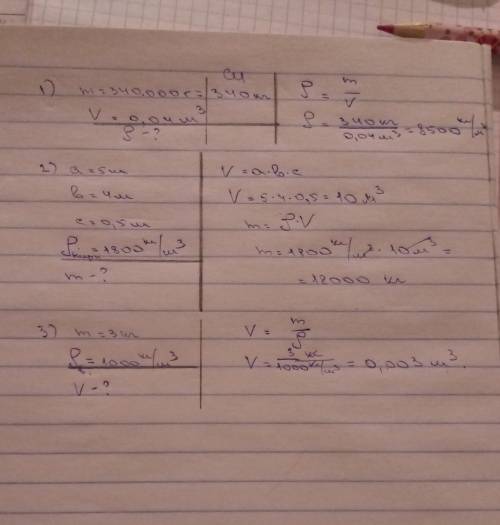 СИ
1) m = 340.000г = 340кг
V = 0,04 м³
ρ - ?
ρ = m/V
ρ = 340кг/0,04м³ = 8500 кг/м³
2) a = 5м
в = 4м
с = 0,5м
ρ = 1800 кг/м³
m - ?
V = a·в·с
V = 5·4·0,5 = 10 м³
m = ρ·V
m = 1800 кг/м³ · 10м³ =
= 18000 кг
3) m = 3кг
ρ = 1000 кг/м³
V - ?
V = m/ρ
V = 3 кг/1000 кг/м³ = 0,003 м³.